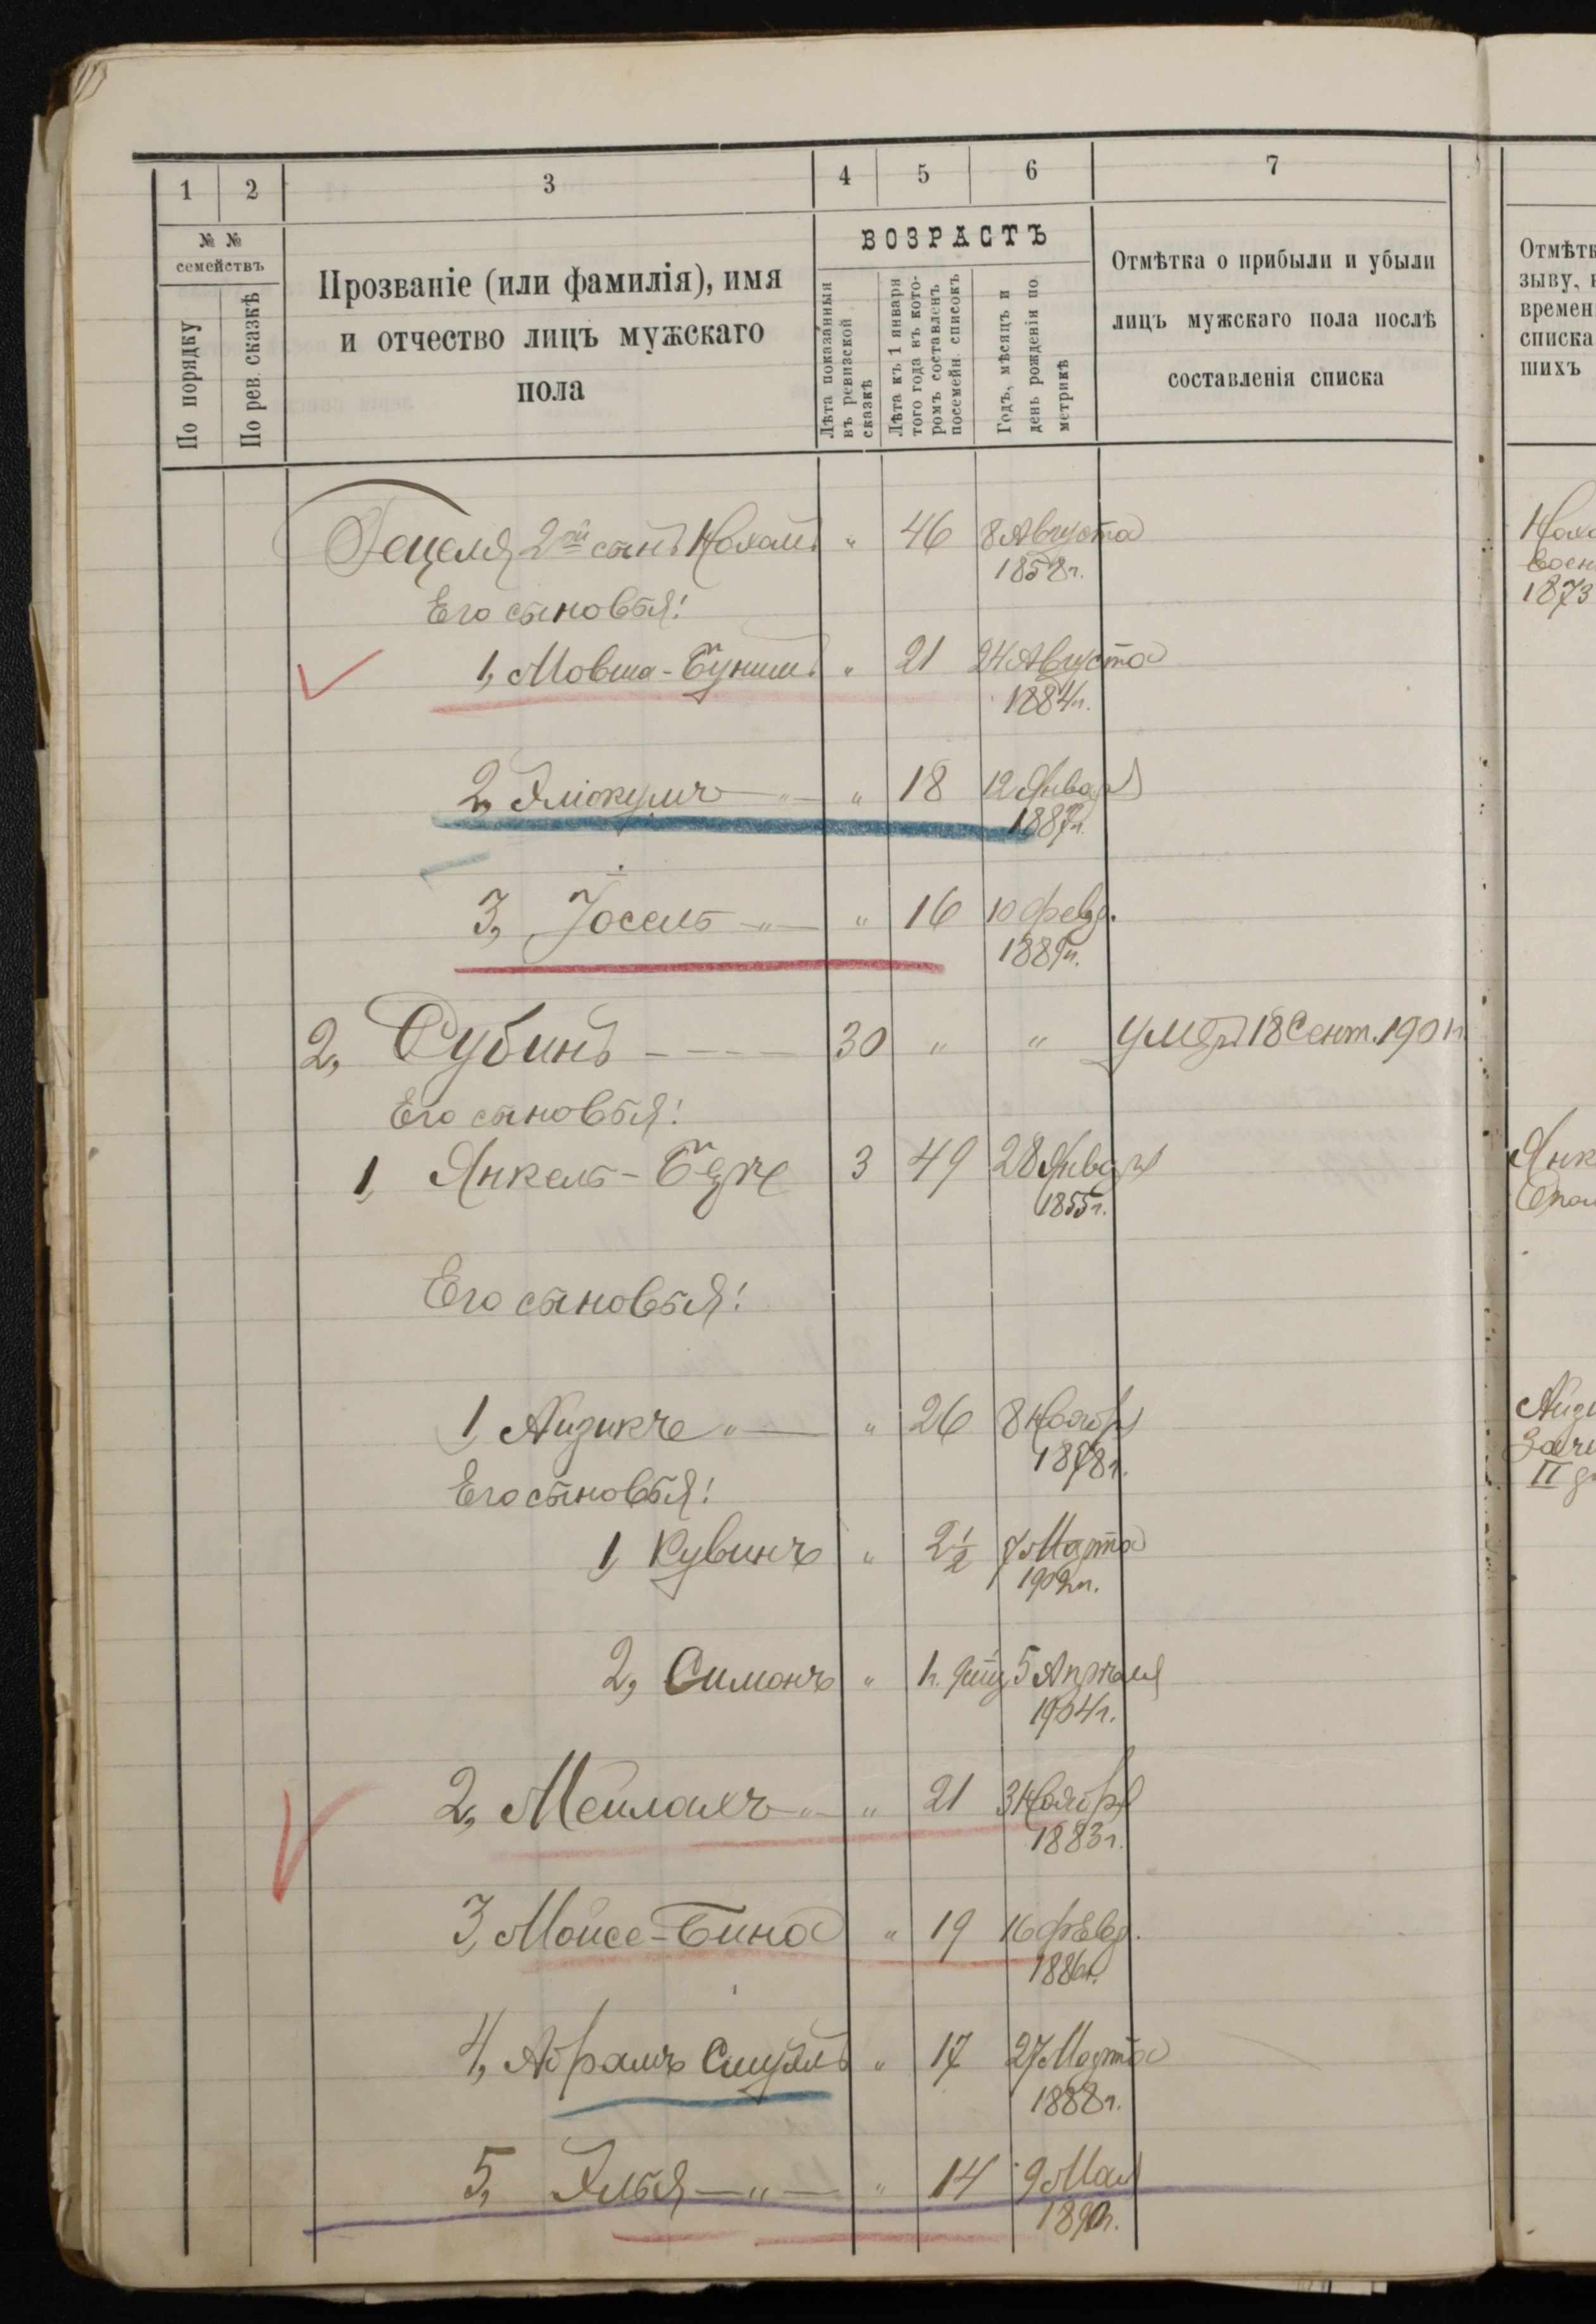 1 2 3 4 5 6 7
№ № семействъ
По порядку
По рев. сказкѣ
Прозваніе (или фамилія), имя
и отчество лицъ мужскаго
пола
ВОЗРАСТЪ
Лѣта показанныя
въ ревизской
сказкѣ
Лѣта къ 1 января
того года въ кото-
ромъ составленъ
посемейн. списокъ
Годъ, мѣсяцъ и
день рожденія по
метрикѣ
Отмѣтка о прибыли и убыли
лицъ мужскаго пола послѣ
составленія списка
Гецеля 2ой сынъ Нохамъ " 46 8 Августа
1858 г.
Его сыновья:
1, Мовша-Бунимъ " 21 24 Августа
1884 г.
2, " 18 12 Января
1887 г.
3, Іосель " " 16 10 февр.
1889 г.
2, Рубинъ 30 " " умеръ 18 Сент. 1901 г
Его сыновья:
1, Янкель-Бере 3 49 28 Января
1855 г.
Его сыновья:
1, Айзикъ " " 26 8 Ноября
1878 г.
Его сыновья:
1, Рувинъ " 2½ 7 Марта
1902 г.
2, Симонъ " 5 Апрѣля
1904 г.
2, Мейлахъ " " 21 3 Ноября
1883 г.
3, Мойсе-Бина " 19 16 февр.
1886 г.
4, Абрамъ Смуйлъ " 17 27 Марта
1888 г.
5, Элья " " 14 9 Мая
1890 г.
Отмѣтк
зыву,
времен
списка
шихъ
Нохо
воен
1873
Янк
Опол
Айзи
Заче
II